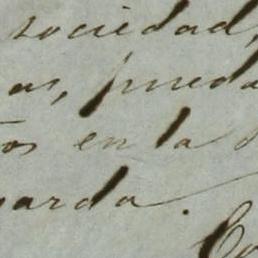 sociedad,
as, pueda
os en la
arda.